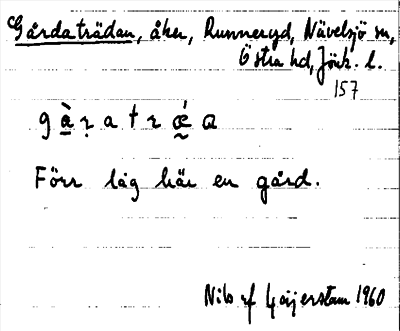 Gårdaträdan, åker, Runneryd, Nävelsjö sn,
Östra hd, Jönk. l.
157
g à̱ ṛ a t r ǽ̰ a
Förr låg här en gård.
Nils af Geijerstam 1960